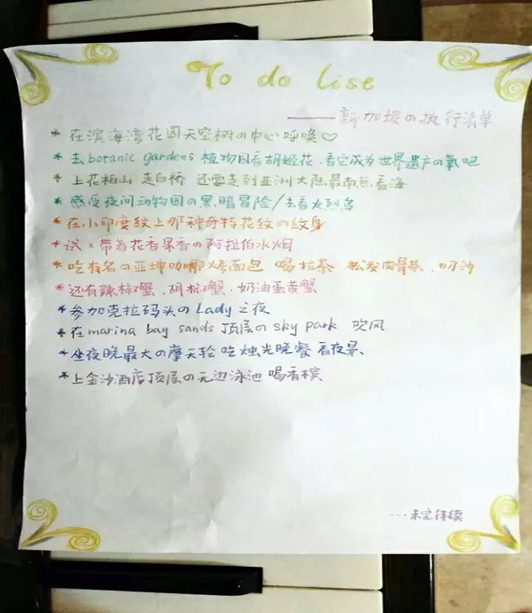 To do List
——新加坡の执行清单
* 在滨海湾花园天空树の中心呼唤♡
* 去botanic gardens 植物园看胡姬花,看它成为世界遗产の氧吧
* 上花柏山 走白桥 还要走到亚洲大陆最南点看海
* 感受夜间动物园の黑暗冒险/去看火烈鸟
* 在小印度纹上那种奇特花纹の纹身
* 试々带着花香果香の阿拉伯水烟
* 吃有名の亚坤咖椰烤面包 喝拉茶 松发肉骨茶、叻沙
* 还有辣椒蟹、胡椒蟹、奶油蛋黄蟹
* 参加克拉码头の Lady之夜
* 在marina bay sands 顶层の sky park 吹风
* 坐夜晚最大の摩天轮 吃烛光晚餐 看夜景、
* 上金沙酒店顶层の无边泳池 喝香槟
...未完待续